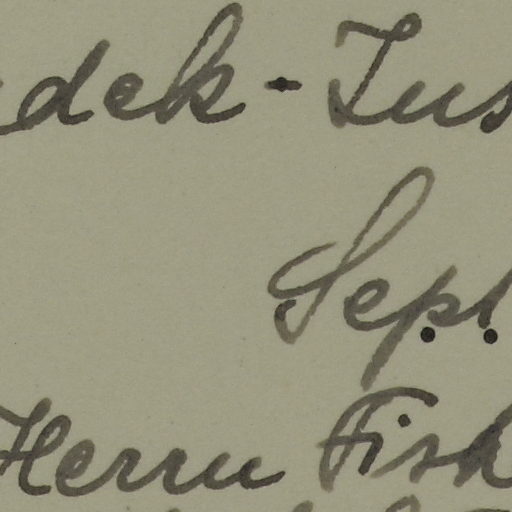 dek - Ius
Sept.
Herrn Fish